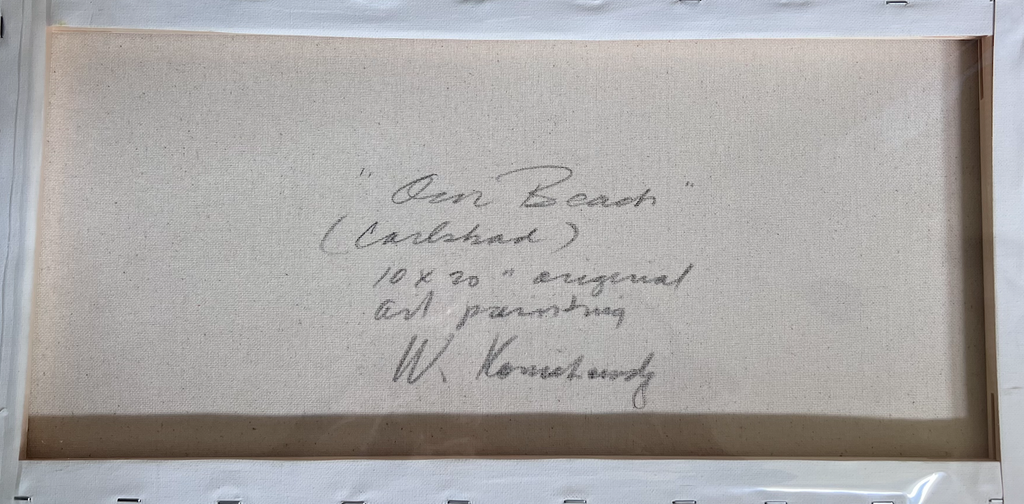 "Our Beach"
(Carlsbad)
10 x 20" original
art painting
W.